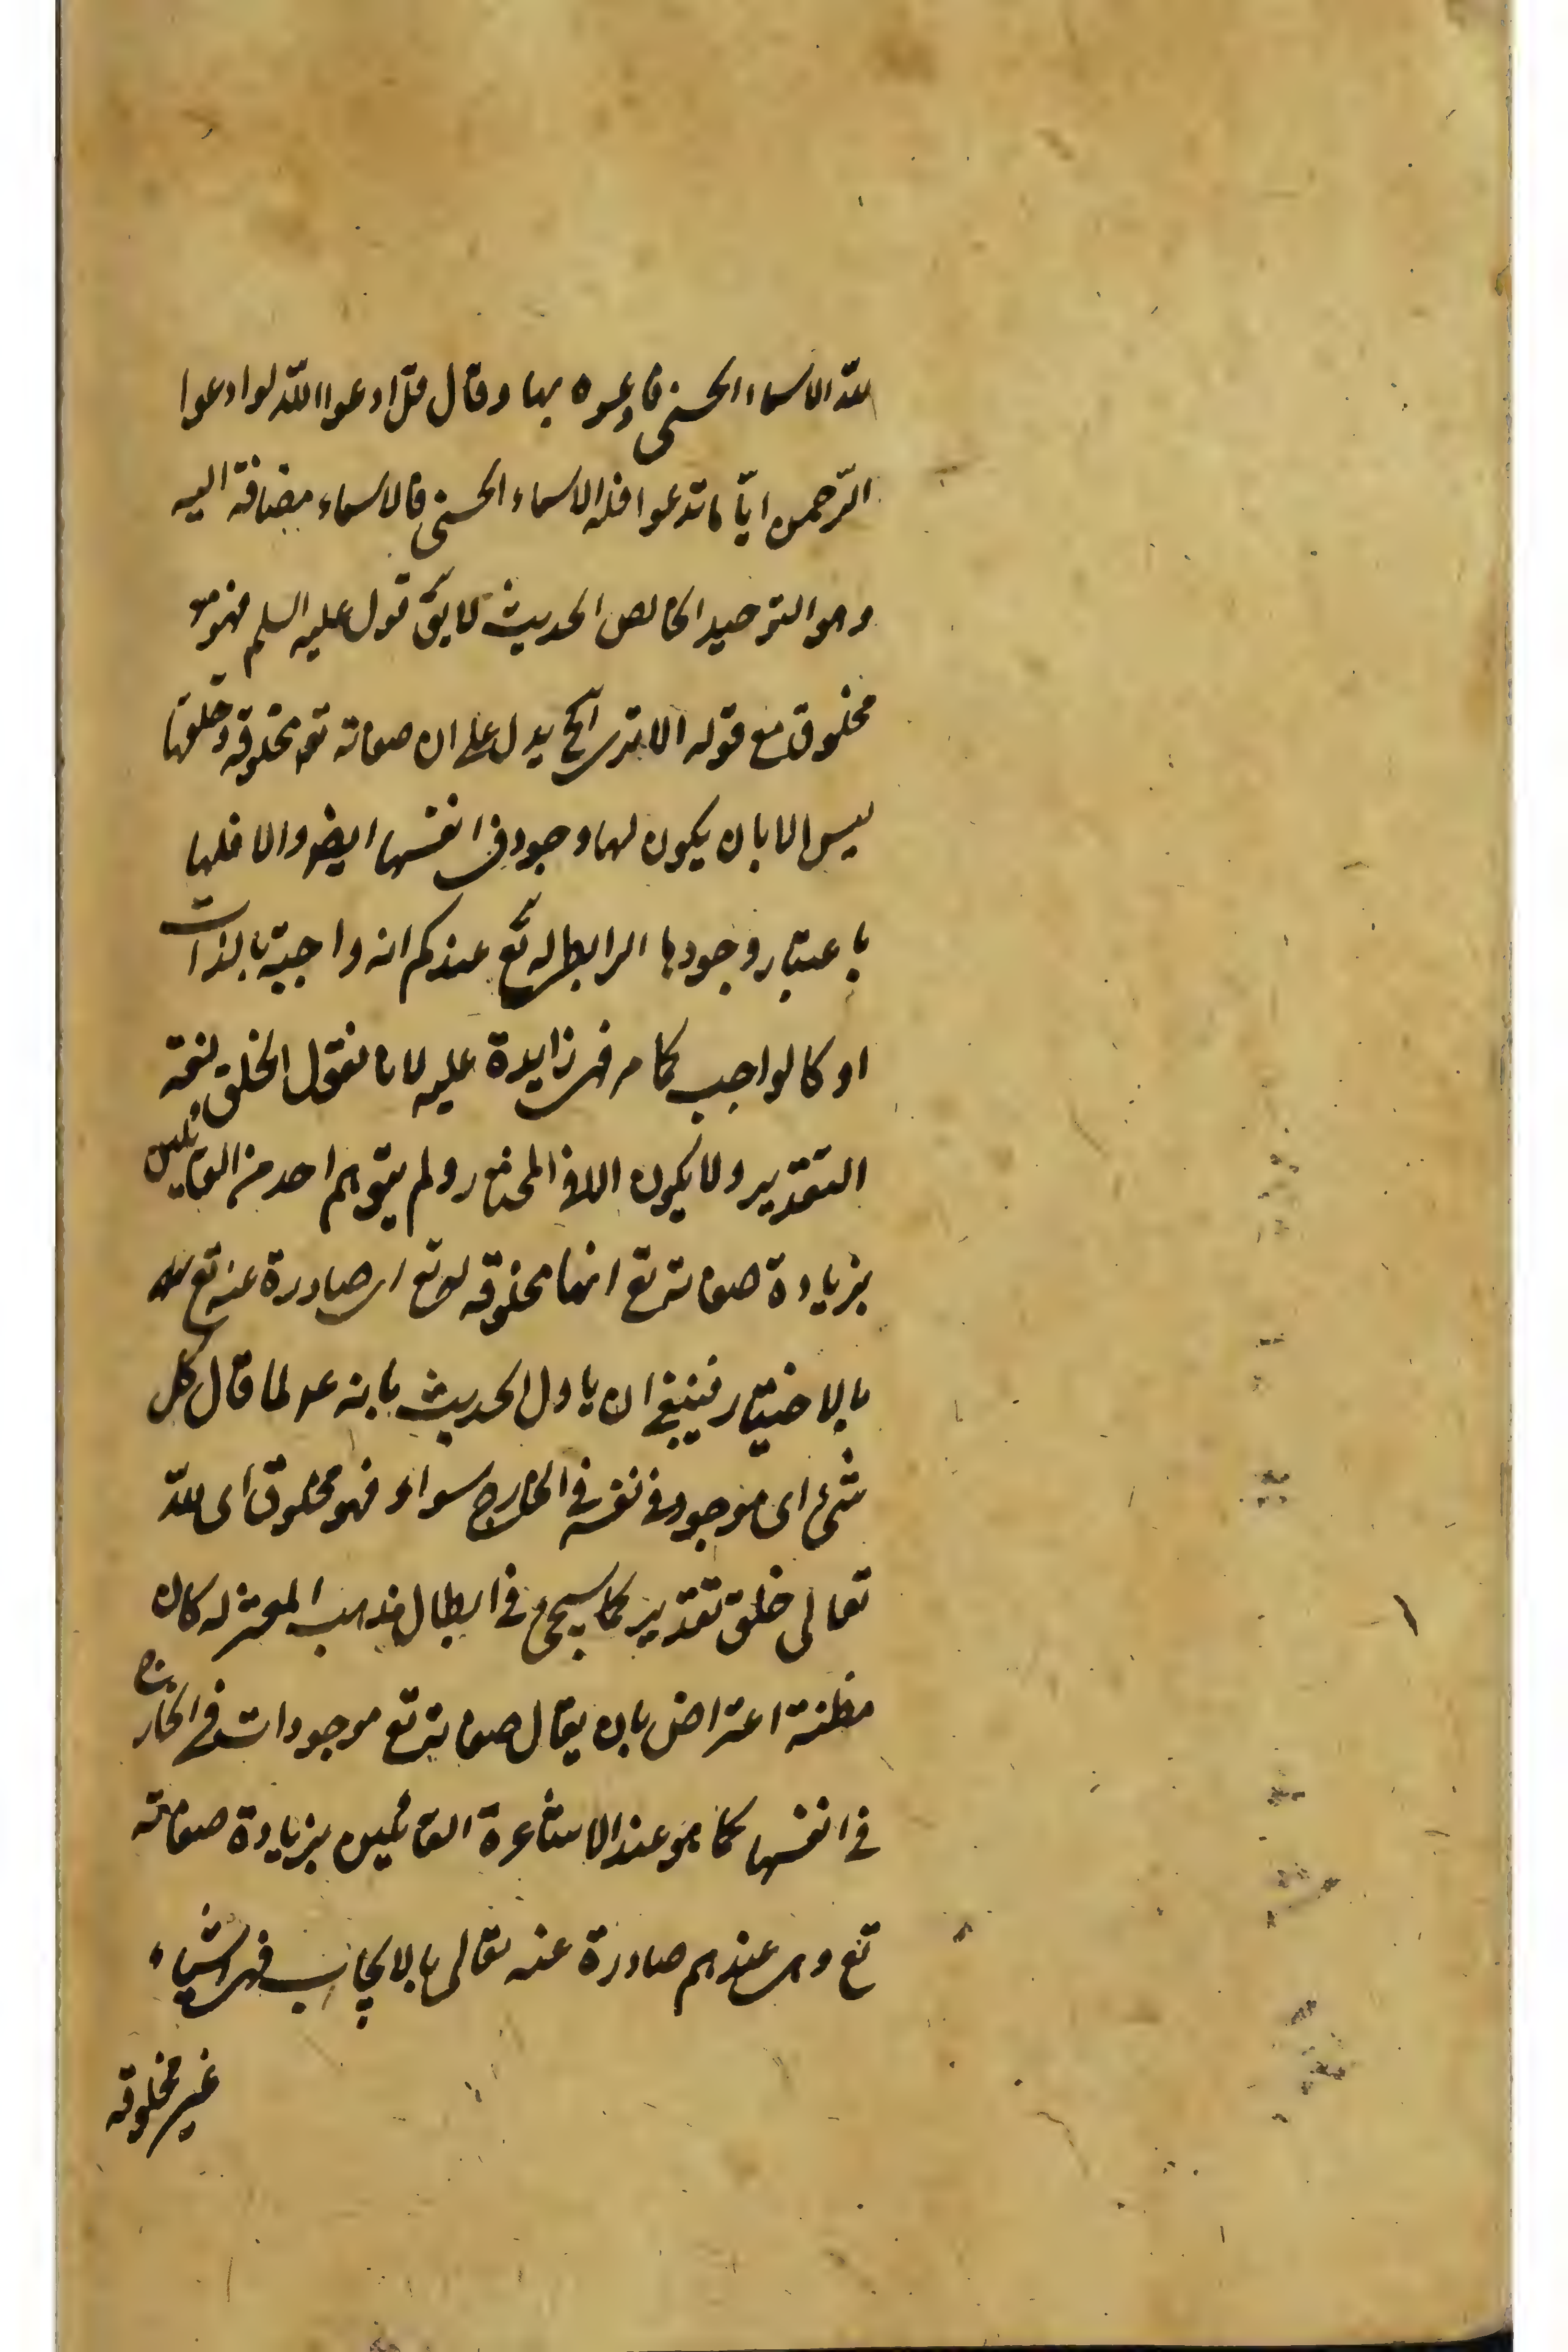 لله الاسماء الحسنى فادعوه بها وقال قل ادعوا الله او ادعوا
الرّحمن ايّا ما تدعوا فله الاسماء الحسنى فالاسماء مضافة اليه
وهو التوحيد الخالص الحديث لا يقّ قول عليه السلم فهو
مخلوق مع قوله الا ترى الخ يدل على ان صفاته تع مخلوقه وخلقها
ليس الا بان يكون لها وجود فى انفسها ايضا والا فلها
باعتبار وجودها الرابطى له تع عندكم انه واجبة بالذات
او كالواجب كما مر فهى زايدة عليه لانا نقول الخلق لغة
التقدير ولا يكون الا فى المختار ولم يتوهم احد من القائلين
بزيادة صفاته تع انها مخلوقه له تع اى صادرة عنه تع
بالاختيار فينبغى ان ياول الحديث بانه ع لما قال كل
شئ اى موجود فى نفسه فى الخارج سواه فهو مخلوق اى لله
تعالى خلق تقدير كما سيجئ فى ابطال مذهب المعتزله كان
مظنة اعتراض بان يقال صفاته تع موجودات فى الخارج
فى انفسها كما هو عند الاشاعرة القائلين بزيادة صفاته
تع وهى عندهم صادرة عنه تعالى بالايجاب فهى اشياء
غير مخلوقه